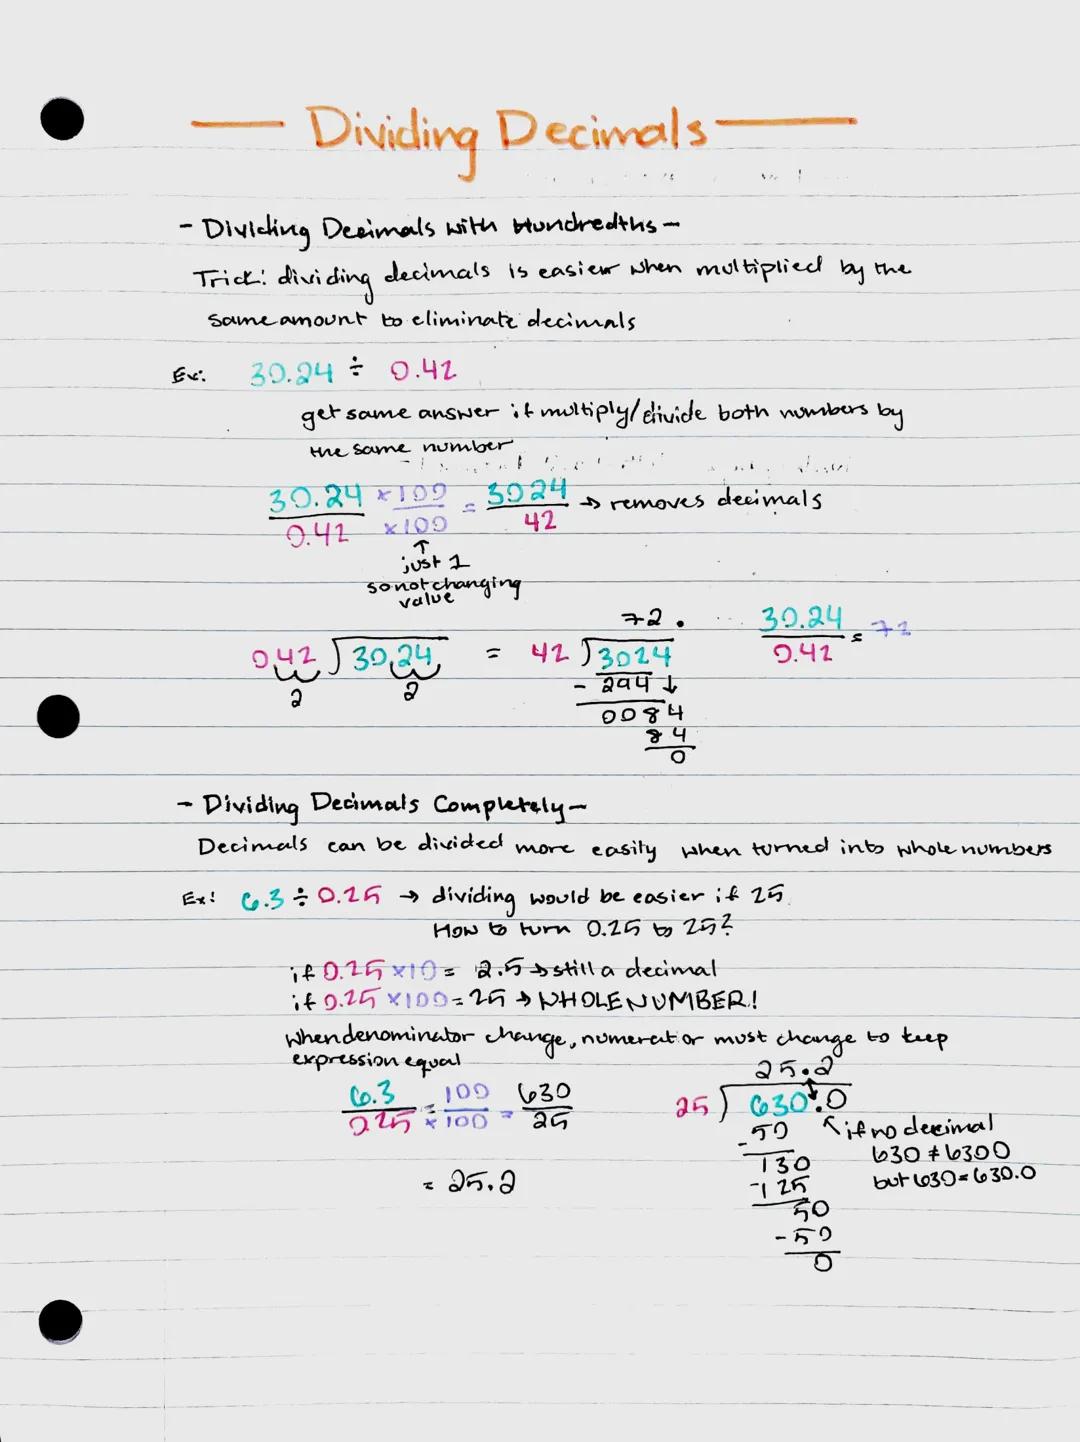 Dividing Decimals
- Dividing Decimals with Hundredths -
Trick: dividing decimals is easier when multiplied by the
same amount to eliminate decimals
Ex: 30.24 ÷ 0.42
get same answer if multiply/divide both numbers by
the same number
30.24 ×100 = 3024 → removes decimals
0.42 ×100 42
↑
just 1
so not changing
value
72. 30.24 = 72
0.42 ) 30.24 = 42 ) 3024 0.42
2 2 - 294 ↓
0084
84
0
- Dividing Decimals Completely -
Decimals can be divided more easily when turned into whole numbers
Ex: 6.3 ÷ 0.25 → dividing would be easier if 25
How to turn 0.25 to 25?
if 0.25 ×10 = 2.5 → still a decimal
if 0.25 ×100 = 25 → WHOLE NUMBER!
When denominator change, numerator must change to keep
expression equal
25.2
6.3 = 100 630 25 ) 630.0
0.25 × 100 = 25 - 50 ↖ if no decimal
130 630 ≠ 6300
= 25.2 - 125 but 630 = 630.0
50
- 50
0